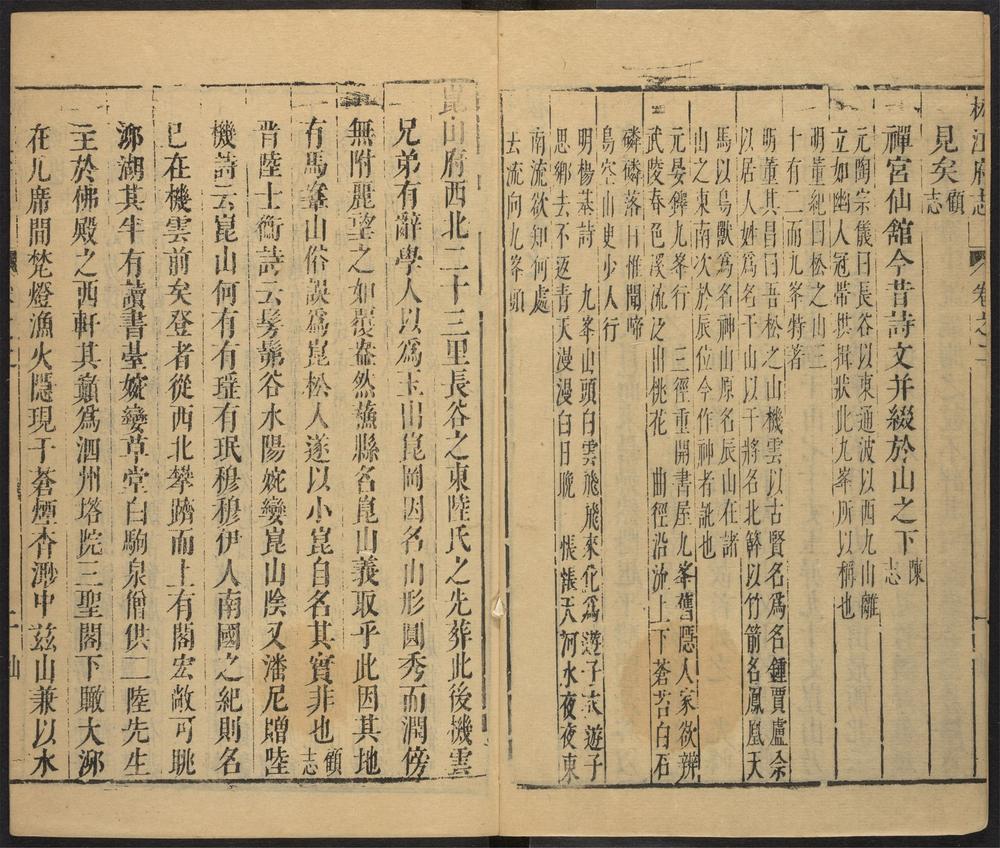 松江府志
卷之二
見矣顧志
禪宮仙館今昔詩文并綴於山之下陳志
元陶宗儀曰長谷以東通波以西九山離
立如幽人冠帶拱揖狀此九峯所以稱也
明董紀曰松之山三
十有二而九峯特著
明董其昌曰吾松之山機雲以古賢名爲名鍾賈盧佘
以居人姓爲名干山以干將名北簳以竹箭名鳳凰天
馬以鳥獸爲名神山原名辰山在諸
山之東南次於辰位今作神者訛也
元晏鐸九峯行　三徑重開書屋九峯舊隱人家欲辨
武陵春色溪流泛出桃花　曲徑沿流上下蒼苔白石
磷磷落日惟聞啼
鳥空山更少人行
明楊基詩　九峯山頭白雲飛飛來化爲遊子衣遊子
思鄉去不返青天漫漫白日晚　悵悵天河水夜夜東
南流欲知何處
去流向九峯頭
崑山府西北二十三里長谷之東陸氏之先葬此後機雲
兄弟有辭學人以爲玉出崑岡因名山形圓秀而潤傍
無附麗望之如覆盎然舊縣名崑山義取乎此因其地
有馬鞍山俗誤爲崑松人遂以小崑自名其實非也顧志
晉陸士衡詩云髣髴谷水陽婉孌崑山陰又潘尼贈陸
機詩云崑山何有有瑤有珉穆穆伊人南國之紀則名
已在機雲前矣登者從西北攀躋而上有閣宏敞可眺
泖湖其半有讀書臺婉孌草堂白駒泉僧供二陸先生
主於佛殿之西軒其巔爲泗州塔院三聖閣下瞰大泖
在几席間梵燈漁火隱現于蒼煙杳渺中茲山兼以水